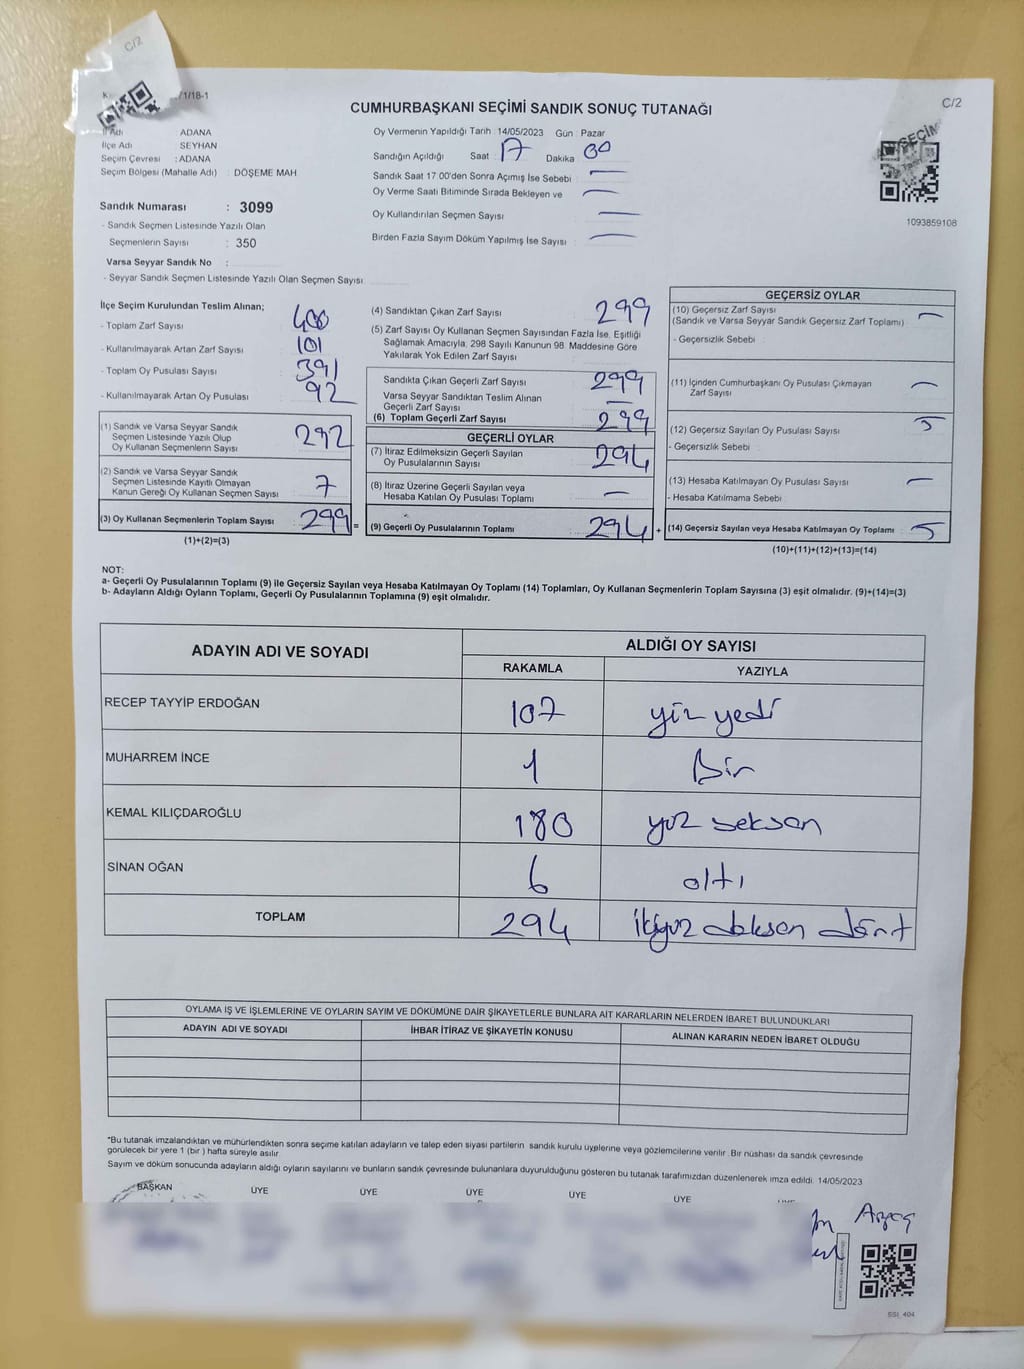 C/2
/1/18-1
CUMHURBAŞKANI SEÇİMİ SANDIK SONUÇ TUTANAĞI
C/2
İl Adı ADANA
İlçe Adı SEYHAN
Seçim Çevresi : ADANA
Seçim Bölgesi (Mahalle Adı) : DÖŞEME MAH
Sandık Numarası : 3099
- Sandık Seçmen Listesinde Yazılı Olan
Seçmenlerin Sayısı : 350
Varsa Seyyar Sandık No :
- Seyyar Sandık Seçmen Listesinde Yazılı Olan Seçmen Sayısı
Oy Vermenin Yapıldığı Tarih : 14/05/2023 Gün : Pazar
Sandığın Açıldığı Saat : 17 Dakika : 00
Sandık Saat 17 00'den Sonra Açımış İse Sebebi : —
Oy Verme Saati Bitiminde Sırada Bekleyen ve —
Oy Kullandırılan Seçmen Sayısı —
Birden Fazla Sayım Döküm Yapılmış İse Sayısı : —
SEÇİM
1093859108
İlçe Seçim Kurulundan Teslim Alınan;
- Toplam Zarf Sayısı : 400
- Kullanılmayarak Artan Zarf Sayısı : 101
- Toplam Oy Pusulası Sayısı : 391
- Kullanılmayarak Artan Oy Pusulası : 92
(1) Sandık ve Varsa Seyyar Sandık
Seçmen Listesinde Yazılı Olup
Oy Kullanan Seçmenlerin Sayısı 292
(2) Sandık ve Varsa Seyyar Sandık
Seçmen Listesinde Kayıtlı Olmayan
Kanun Gereği Oy Kullanan Seçmen Sayısı 7
(3) Oy Kullanan Seçmenlerin Toplam Sayısı 299 =
(1)+(2)=(3)
(4) Sandıktan Çıkan Zarf Sayısı 299
(5) Zarf Sayısı Oy Kullanan Seçmen Sayısından Fazla İse, Eşitliği
Sağlamak Amacıyla, 298 Sayılı Kanunun 98. Maddesine Göre
Yakılarak Yok Edilen Zarf Sayısı
Sandıkta Çıkan Geçerli Zarf Sayısı 299
Varsa Seyyar Sandıktan Teslim Alınan
Geçerli Zarf Sayısı —
(6) Toplam Geçerli Zarf Sayısı 299
GEÇERLİ OYLAR
(7) İtiraz Edilmeksizin Geçerli Sayılan
Oy Pusulalarının Sayısı 294
(8) İtiraz Üzerine Geçerli Sayılan veya
Hesaba Katılan Oy Pusulası Toplamı —
(9) Geçerli Oy Pusulalarının Toplamı 294 +
GEÇERSİZ OYLAR
(10) Geçersiz Zarf Sayısı
(Sandık ve Varsa Seyyar Sandık Geçersiz Zarf Toplamı) —
- Geçersizlik Sebebi :
(11) İçinden Cumhurbaşkanı Oy Pusulası Çıkmayan
Zarf Sayısı —
(12) Geçersiz Sayılan Oy Pusulası Sayısı 5
- Geçersizlik Sebebi
(13) Hesaba Katılmayan Oy Pusulası Sayısı —
- Hesaba Katılmama Sebebi
(14) Geçersiz Sayılan veya Hesaba Katılmayan Oy Toplamı 5
(10)+(11)+(12)+(13)=(14)
NOT:
a- Geçerli Oy Pusulalarının Toplamı (9) ile Geçersiz Sayılan veya Hesaba Katılmayan Oy Toplamı (14) Toplamları, Oy Kullanan Seçmenlerin Toplam Sayısına (3) eşit olmalıdır. (9)+(14)=(3)
b- Adayların Aldığı Oyların Toplamı, Geçerli Oy Pusulalarının Toplamına (9) eşit olmalıdır.
ADAYIN ADI VE SOYADI ALDIĞI OY SAYISI
RAKAMLA YAZIYLA
RECEP TAYYİP ERDOĞAN 107 yüz yedi
MUHARREM İNCE 1 Bir
KEMAL KILIÇDAROĞLU 180 yüz seksan
SİNAN OĞAN 6 altı
TOPLAM 294 ikiyüz doksan dört
OYLAMA İŞ VE İŞLEMLERİNE VE OYLARIN SAYIM VE DÖKÜMÜNE DAİR ŞİKAYETLERLE BUNLARA AİT KARARLARIN NELERDEN İBARET BULUNDUKLARI
ADAYIN ADI VE SOYADI İHBAR İTİRAZ VE ŞİKAYETİN KONUSU ALINAN KARARIN NEDEN İBARET OLDUĞU
*Bu tutanak imzalandıktan ve mühürlendikten sonra seçime katılan adayların ve talep eden siyasi partilerin sandık kurulu üyelerine veya gözlemcilerine verilir. Bir nüshası da sandık çevresinde
görülecek bir yere 1 (bir ) hafta süreyle asılır.
Sayım ve döküm sonucunda adayların aldığı oyların sayılarını ve bunların sandık çevresinde bulunanlara duyurulduğunu gösteren bu tutanak tarafımızdan düzenlenerek imza edildi. 14/05/2023
BAŞKAN ÜYE ÜYE ÜYE ÜYE ÜYE
SSI_404